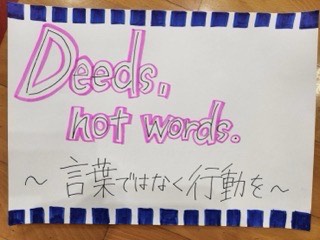 Deeds,
not words.
～言葉ではなく行動を～